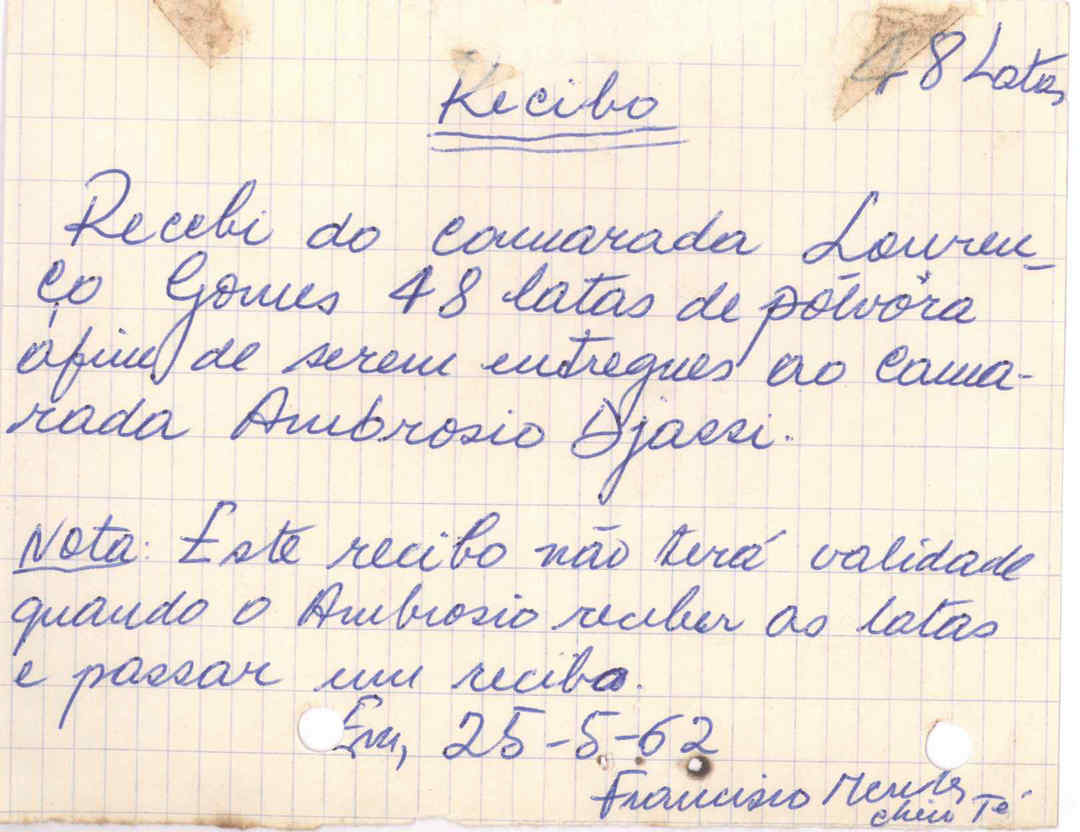 48 Latas
Recibo
Recebi do camarada Louren-
ço Gomes 48 latas de pólvora
afim, de serem entregues ao cama-
rada Ambrosio Djassi.
Nota: Este recibo não terá validade
quando o Ambrosio receber as latas
e passar um recibo.
Em, 25-5-62
Francisco Mendes